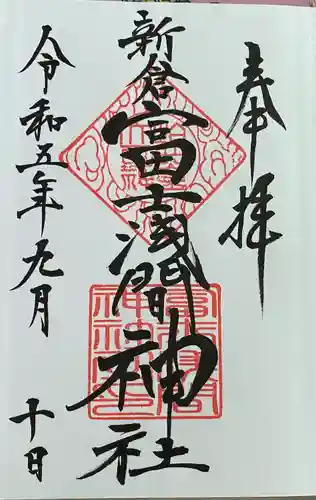 奉拝
新倉富士浅間神社
令和五年九月
十日